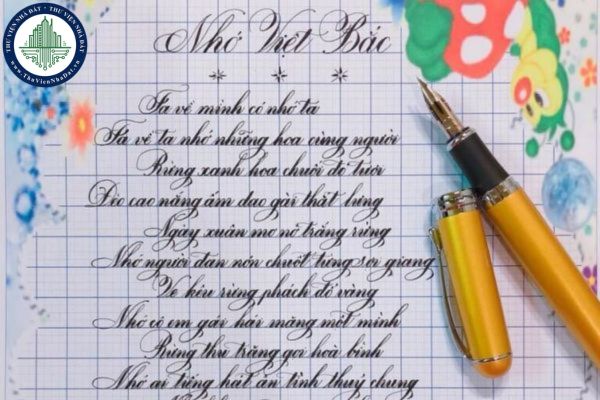 THƯ VIỆN NHÀ ĐẤT • THƯ VIỆN NHÀ ĐẤT
www.ThuVienNhaDat.vn
Nhớ Việt Bắc
Ta về mình có nhớ ta
Ta về ta nhớ những hoa cùng người
Rừng xanh hoa chuối đỏ tươi
Đèo cao nắng ấm dao gài thắt lưng
Ngày xuân mơ nở trắng rừng
Nhớ người đan nón chuốt từng sợi giang
Ve kêu rừng phách đổ vàng
Nhớ cô em gái hái măng một mình
Rừng thu trăng gọi hoà bình
Nhớ ai tiếng hát ân tình thuỷ chung